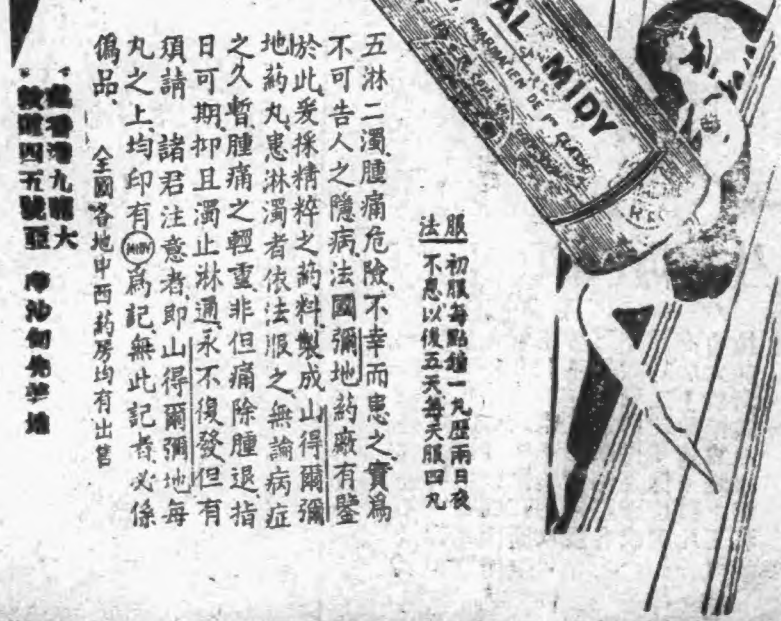 AL MIDY
PHARMACIEN DE 1re CLASSE
服法
初服每點鐘一丸歷兩日夜
不息以後五天每天服四丸
五淋二濁腫痛危險不幸而患之實爲
不可告人之隱病法國彌地葯廠有鑒
於此爰採精粹之葯料製成山得爾彌
地葯丸患淋濁者依法服之無論病症
之久暫腫痛之輕重非但痛除腫退指
日可期抑且濁止淋通永不復發但有
須請 諸君注意者即山得爾彌地每
丸之上均印有MIDY爲記無此記者必係
僞品
全國各地中西葯房均有出售
九 大
四五號